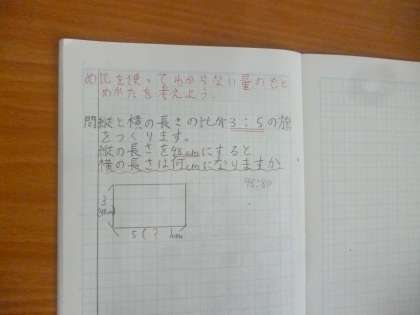 め比を使ってわからない量のもと
めかたを考えよう。
問縦と横の長さの比が3:5の旗
をつくります。
縦の長さを48cmにすると
横の長さは何cmになりますか
48:80
3
5(?